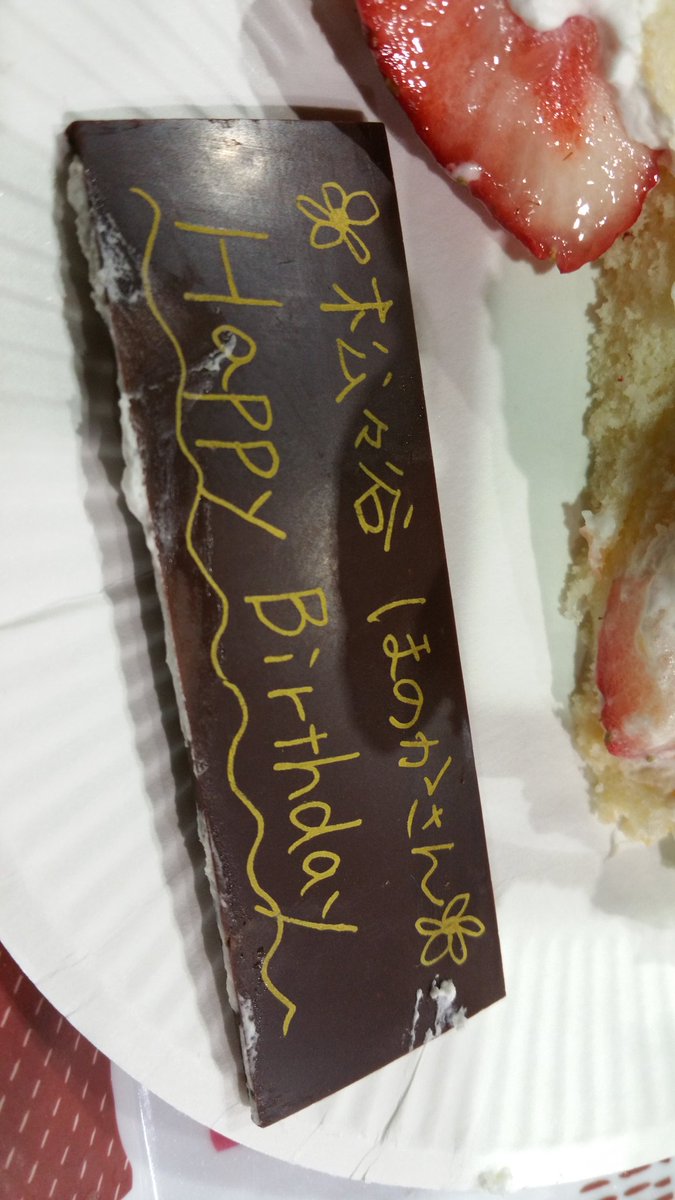 松々谷 ほのかさん
Happy Birthday